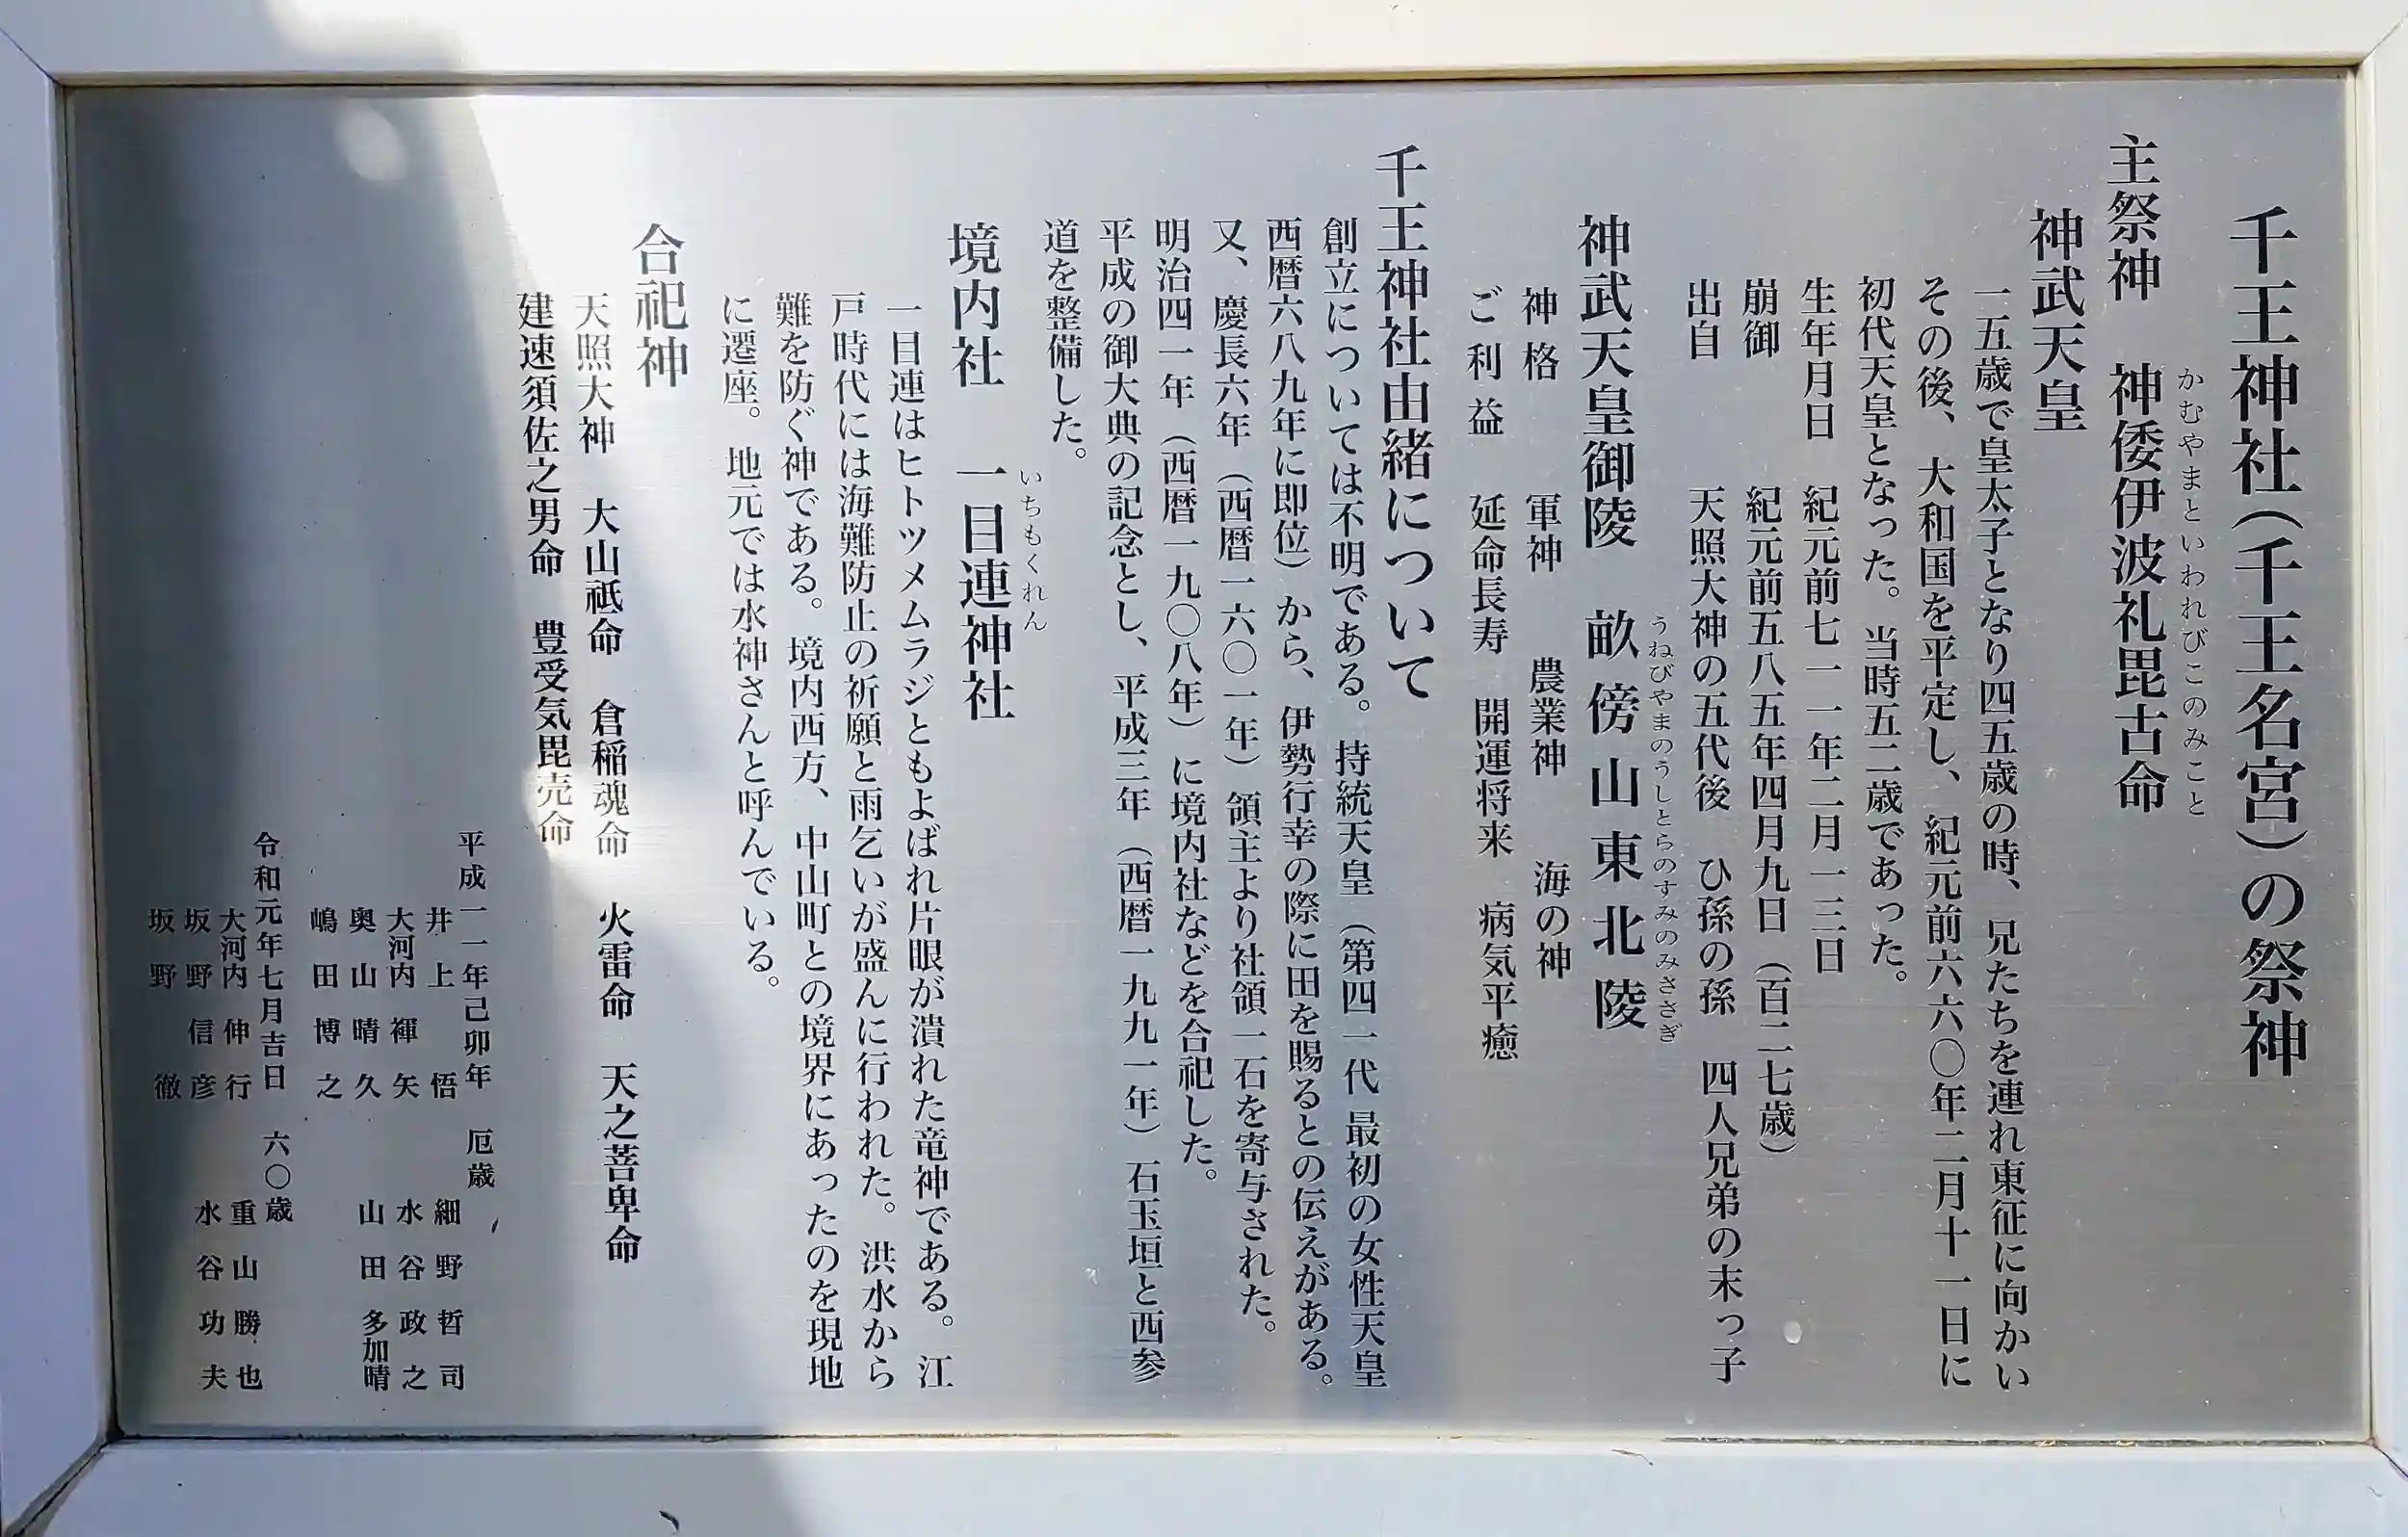 千王神社(千王名宮)の祭神
かむやまといわれびこのみこと
主祭神 神倭伊波礼毘古命
神武天皇
一五歳で皇太子となり四五歳の時、兄たちを連れ東征に向かい
その後、大和国を平定し、紀元前六六〇年二月十一日に
初代天皇となった。当時五二歳であった。
生年月日 紀元前七一一年二月一三日
崩御 紀元前五八五年四月九日(百二七歳)
出自 天照大神の五代後 ひ孫の孫 四人兄弟の末っ子
うねびやまのうしとらのすみのみささぎ
神武天皇御陵 畝傍山東北陵
神格 軍神 農業神 海の神
ご利益 延命長寿 開運将来 病気平癒
千王神社由緒について
創立については不明である。持統天皇(第四一代 最初の女性天皇
西暦六八九年に即位)から、伊勢行幸の際に田を賜るとの伝えがある。
又、慶長六年(西暦一六〇一年)領主より社領一石を寄与された。
明治四一年(西暦一九〇八年)に境内社などを合祀した。
平成の御大典の記念とし、平成三年(西暦一九九一年)石玉垣と西参
道を整備した。
いちもくれん
境内社 一目連神社
一目連はヒトツメムラジともよばれ片眼が潰れた竜神である。江
戸時代には海難防止の祈願と雨乞いが盛んに行われた。洪水から
難を防ぐ神である。境内西方、中山町との境界にあったのを現地
に遷座。地元では水神さんと呼んでいる。
合祀神
天照大神 大山祇命 倉稲魂命 火雷命 天之菩卑命
建速須佐之男命 豊受気毘売命
平成一一年己卯年 厄歳
井上 悟 細野哲司
大河内褌矢 水谷政之
奥山晴久 山田多加晴
嶋田博之
令和元年七月吉日 六〇歳
大河内伸行 重山勝也
坂野信彦 水谷功夫
坂野 徹